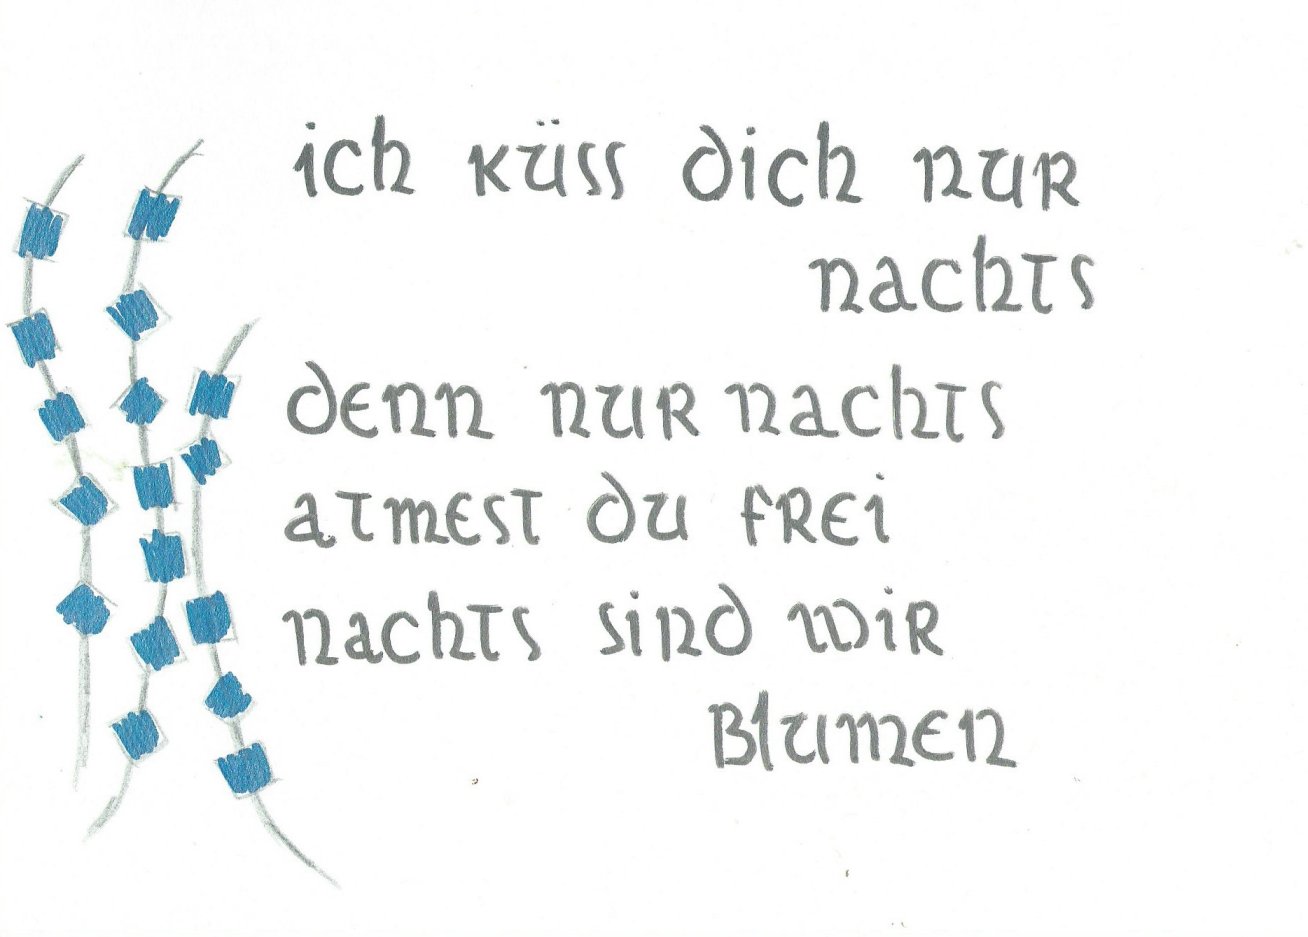 ich küss dich nur
nachts
denn nur nachts
atmest du frei
nachts sind wir
Blumen